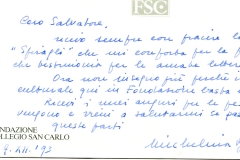 FSC
Caro Salvatore,
ricevo sempre con piacere lo
"Spiragli" che mi conforta per la f
che testimonia per le amate lettere
Ora non insegno più perché i
culturale qui in Fondazione basta
Ricevi i miei auguri per le
vengono e vieni a salutarmi se pas
queste parti
NDAZIONE
LLEGIO SAN CARLO
9.XII.'93
Michelina